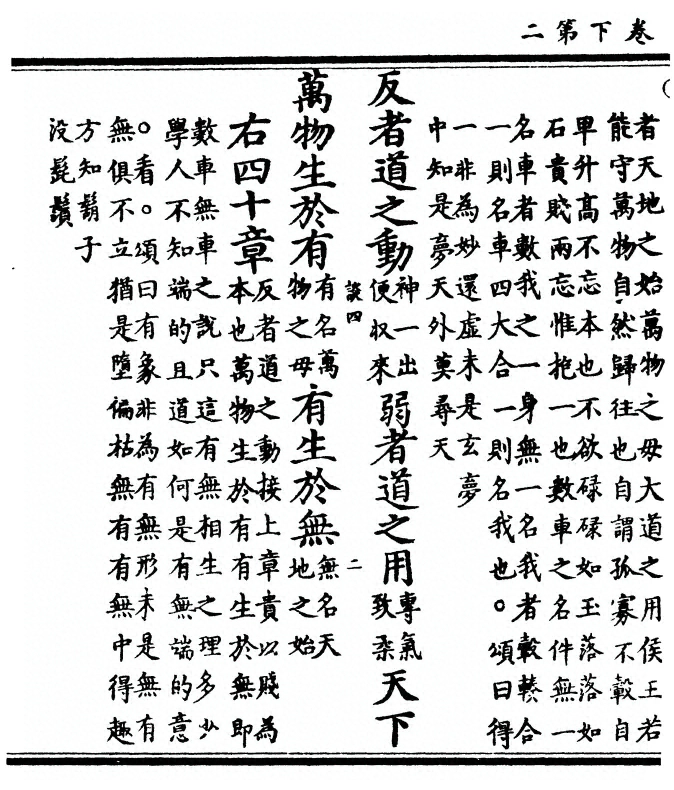 卷下第二
者天地之始萬物之母大道之用侯王若
能守萬物自然歸往也自謂孤寡不轂自
卑升高不忘本也不欲碌碌如玉落落如
石貴賤兩忘惟抱一也數車之名件無一
名車者數我之一身無一名我者轂輳合
一則名車四大合一則名我也。頌曰得
一非為妙還虛未是玄夢
中知是夢天外莫尋天
反者道之動神一出便収來弱者道之用專氣致柔天下
談四 二
萬物生於有有名萬物之母有生於無無名天地之始
右四十章反者道之動接上章貴以賤為本也萬物生於有有生於無即
數車無車之說只這有無相生之理多少
學人不知端的且道如何是有無端的意
。看。頌曰有象非為有無形未是無有
無俱不立猶是墮偏枯無有有無中得趣
方知鬍子
没髭鬚